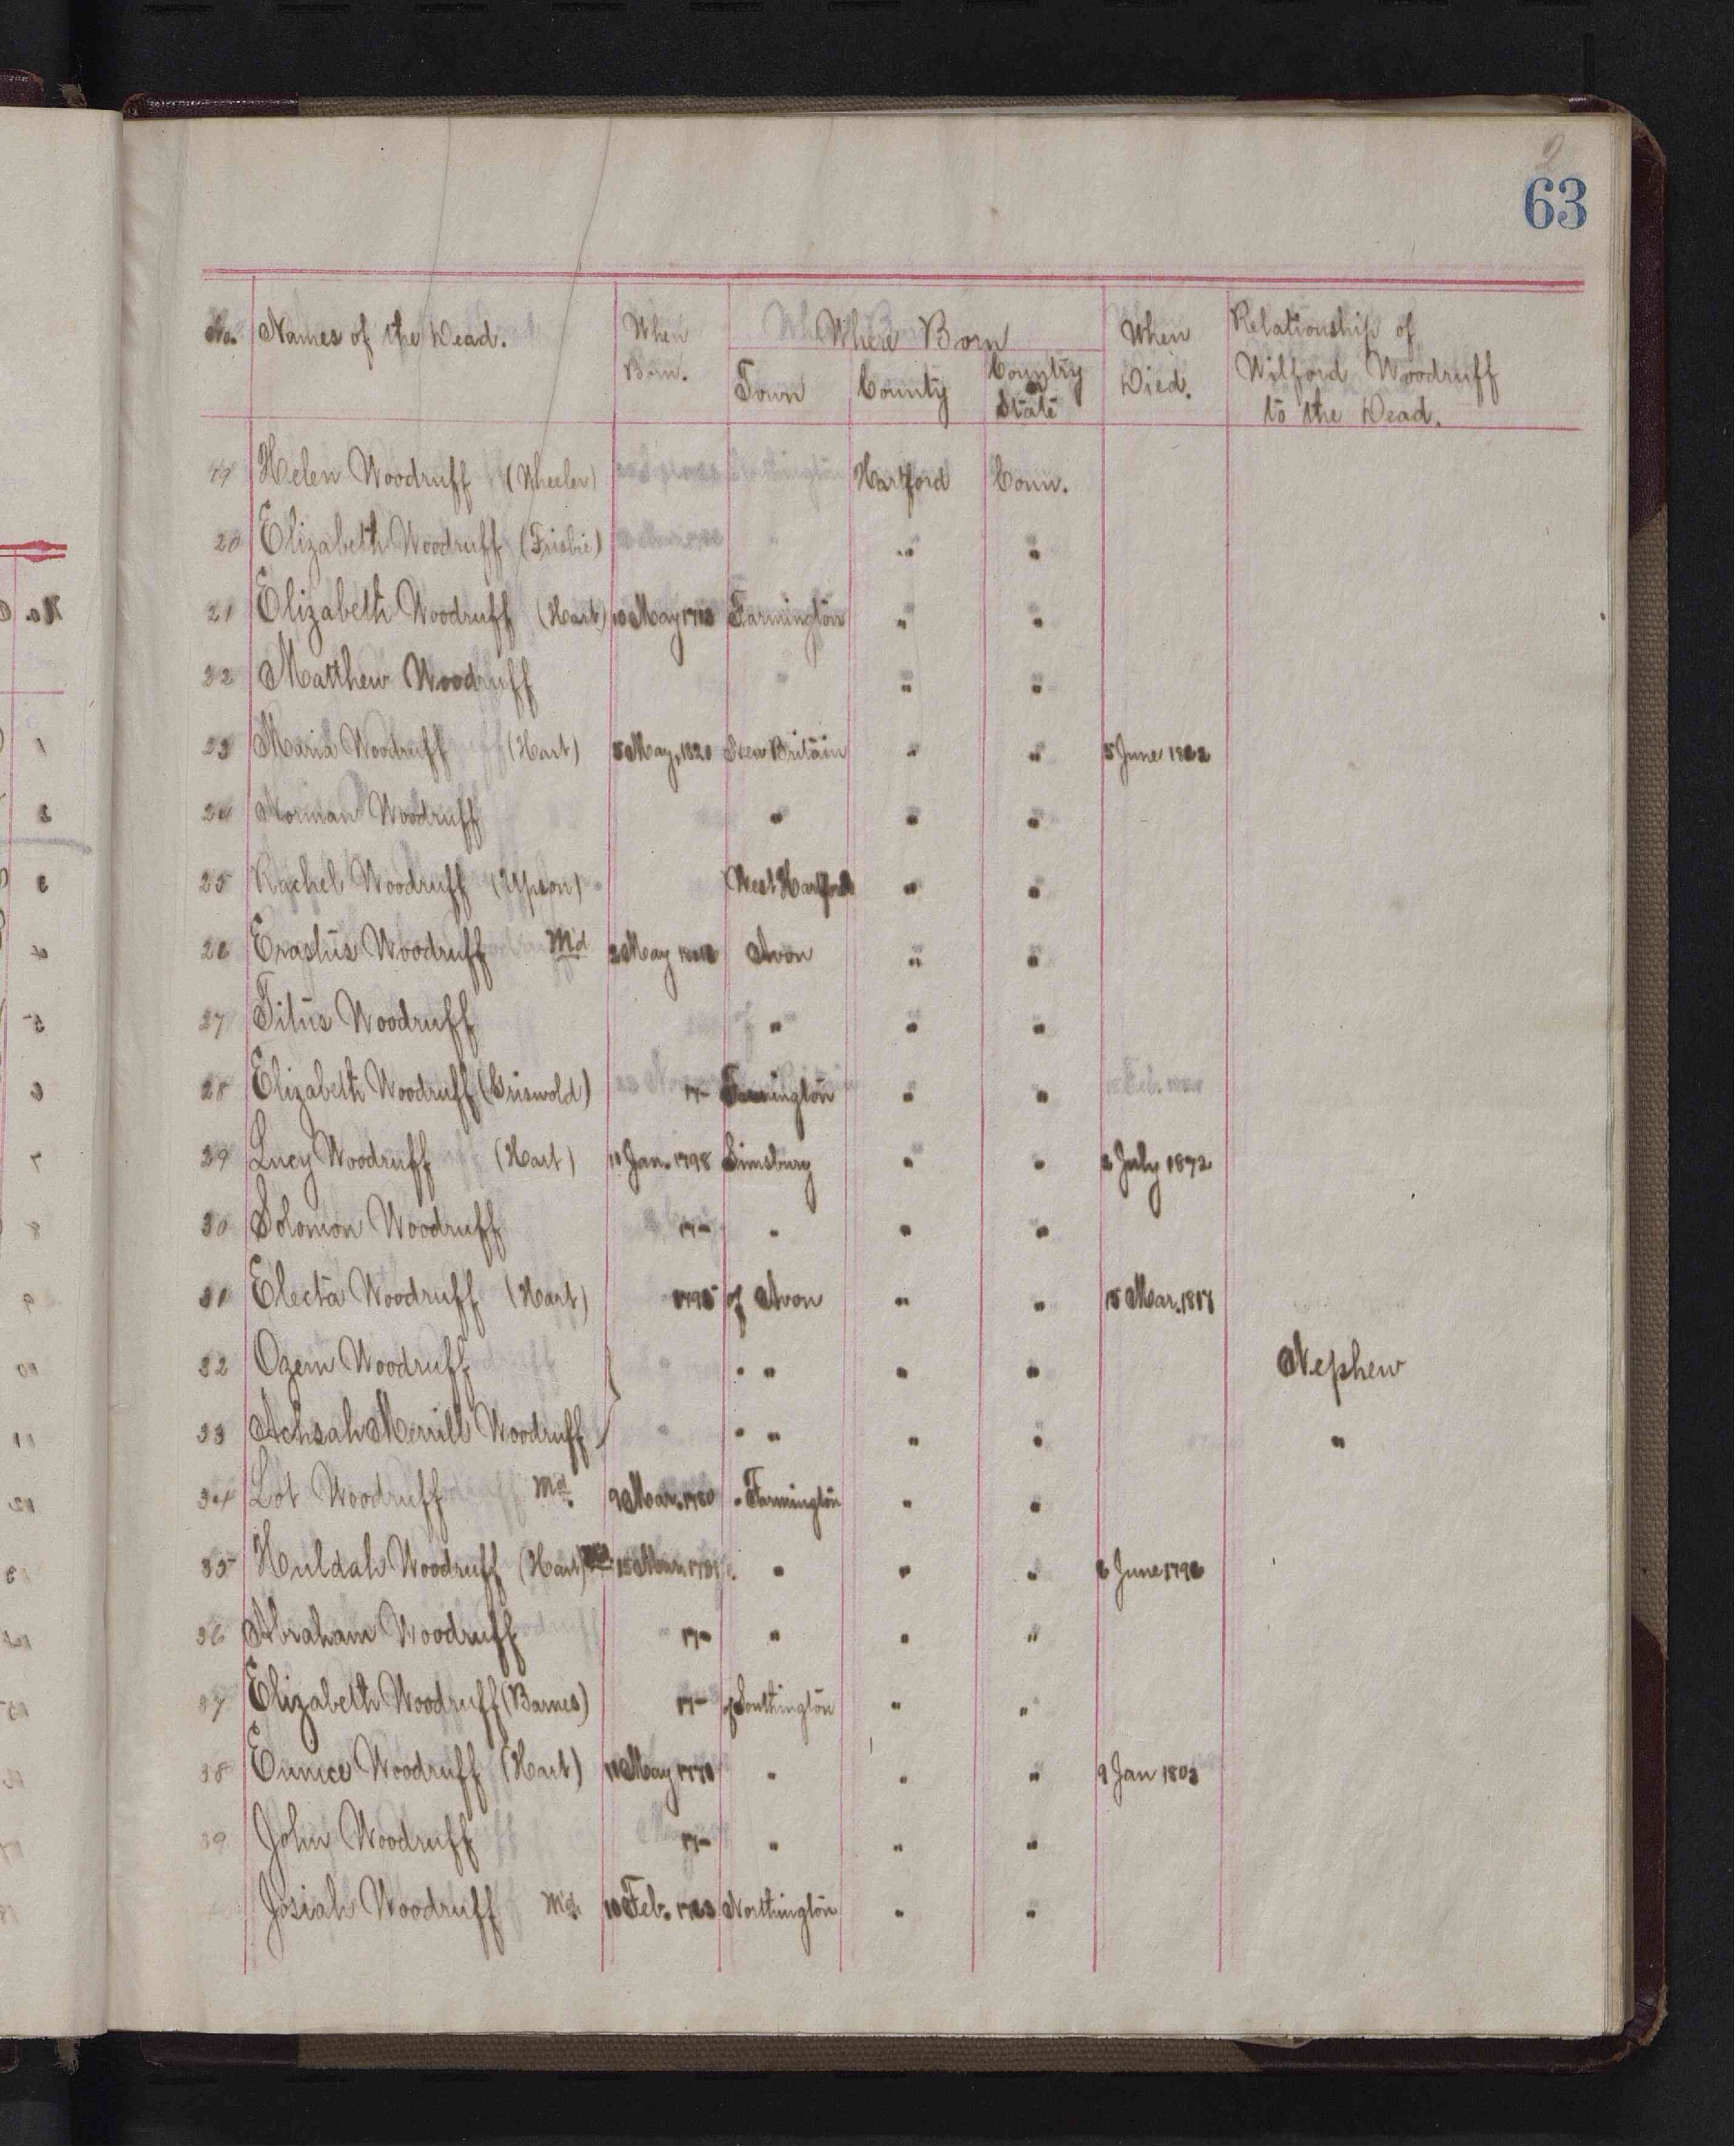 2
63
No. Names of the Dead. When Born. Where Born When Died. Relationship of Wilford Woodruff to the Dead.
Town County Country or State
19 Helen Woodruff (Wheeler) Hartford Conn.
20 Elizabeth Woodruff (Frisbie) " "
21 Elizabeth Woodruff (Hart) 10 May Farmington " "
22 Matthew Woodruff " " "
23 Maria Woodruff (Hart) 5 May, 1820 New Britain " " 5 June
24 Norman Woodruff " " "
25 Rachel Woodruff (Upson) West Hartford " "
26 Erastus Woodruff Md 2 May Avon " "
27 Titus Woodruff " " "
28 Elizabeth Woodruff (Griswold) 17- Farmington " "
29 Lucy Woodruff (Hart) 11 Jan. 1798 Simsbury " " 2 July 1872
30 Solomon Woodruff 17- " " "
31 Electa Woodruff (Hart) 1795 of Avon " " 15 Mar. 1817
32 Ozem Woodruff " " " " Nephew
33 Achsah Merrill Woodruff " " " " "
34 Lot Woodruff Md. 9 Mar. 1780 " Farmington " "
35 Huldah Woodruff (Hart) 15 Mar. " " " " 6 June 1796
36 Abraham Woodruff 17- " " "
37 Elizabeth Woodruff (Barnes) 17- of Southington " "
38 Eunice Woodruff (Hart) May " " " 9 Jan 1803
39 John Woodruff 17- " " "
Josiah Woodruff Md. 10 Feb. Northington " "